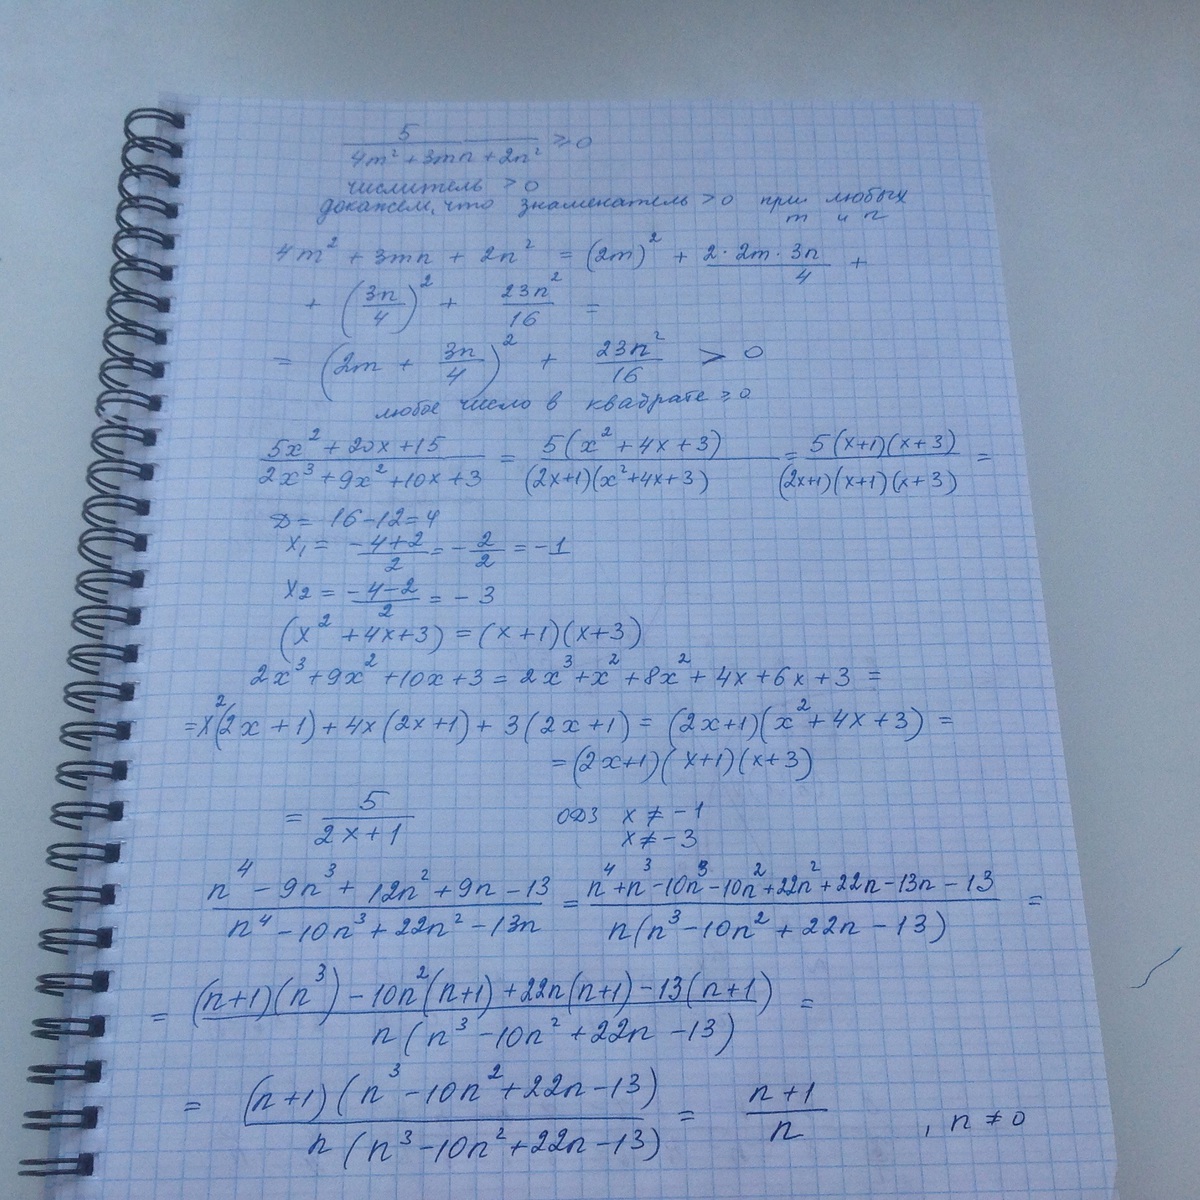 5/(4m² + 3mn + 2n²) ≥ 0
числитель > 0
докажем, что знаменатель > 0 при любых
m и n
4m² + 3mn + 2n² = (2m)² + (2·2m·3n)/4 +
+ (3n/4)² + 23n²/16 =
= (2m + 3n/4)² + 23n²/16 > 0
любое число в квадрате ≥ 0
(5x² + 20x + 15)/(2x³ + 9x² + 10x + 3) = 5(x² + 4x + 3)/((2x+1)(x²+4x+3)) = 5(x+1)(x+3)/((2x+1)(x+1)(x+3)) =
D = 16-12=4
x₁ = (-4+2)/2 = -2/2 = -1
x₂ = (-4-2)/2 = -3
(x² + 4x+3) = (x+1)(x+3)
2x³ + 9x² + 10x + 3 = 2x³ + x² + 8x² + 4x + 6x + 3 =
= x²(2x+1) + 4x(2x+1) + 3(2x+1) = (2x+1)(x² + 4x + 3) =
= (2x+1)(x+1)(x+3)
= 5/(2x+1) ОДЗ x ≠ -1
x ≠ -3
(n⁴ - 9n³ + 12n² + 9n - 13)/(n⁴ - 10n³ + 22n² - 13n) = (n⁴ + n³ - 10n³ - 10n² + 22n² + 22n - 13n - 13)/(n(n³ - 10n² + 22n - 13)) =
= ((n+1)(n³) - 10n²(n+1) + 22n(n+1) - 13(n+1))/(n(n³ - 10n² + 22n - 13)) =
= (n+1)(n³ - 10n² + 22n - 13)/(n(n³ - 10n² + 22n - 13)) = (n+1)/n , n ≠ 0